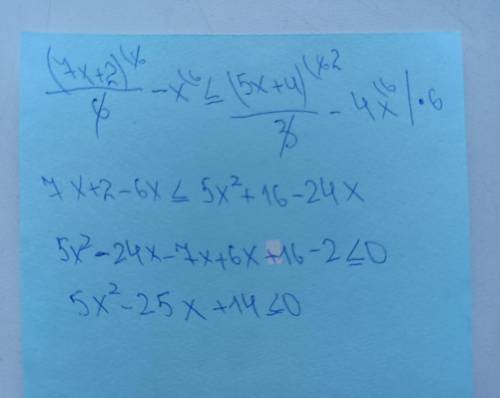 (7x+2)^(6 / 6 - x^(6 ≤ (5x+4)^(6 2 / 3 - 4x^(6 | · 6
7x+2-6x ≤ 5x²+16-24x
5x²-24x-7x+6x+16-2≤0
5x²-25x+14≤0